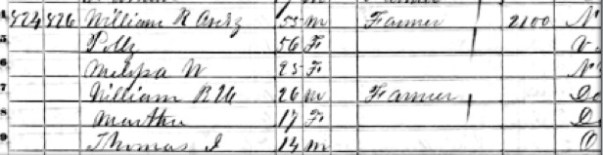 824 826 William R Avery 55 m Farmer 2100 N
5 Polly 56 F V
6 Melissa W 25 F N
7 William R W 26 m Farmer Do
8 Martha 17 F D
9 Thomas J 14 m O